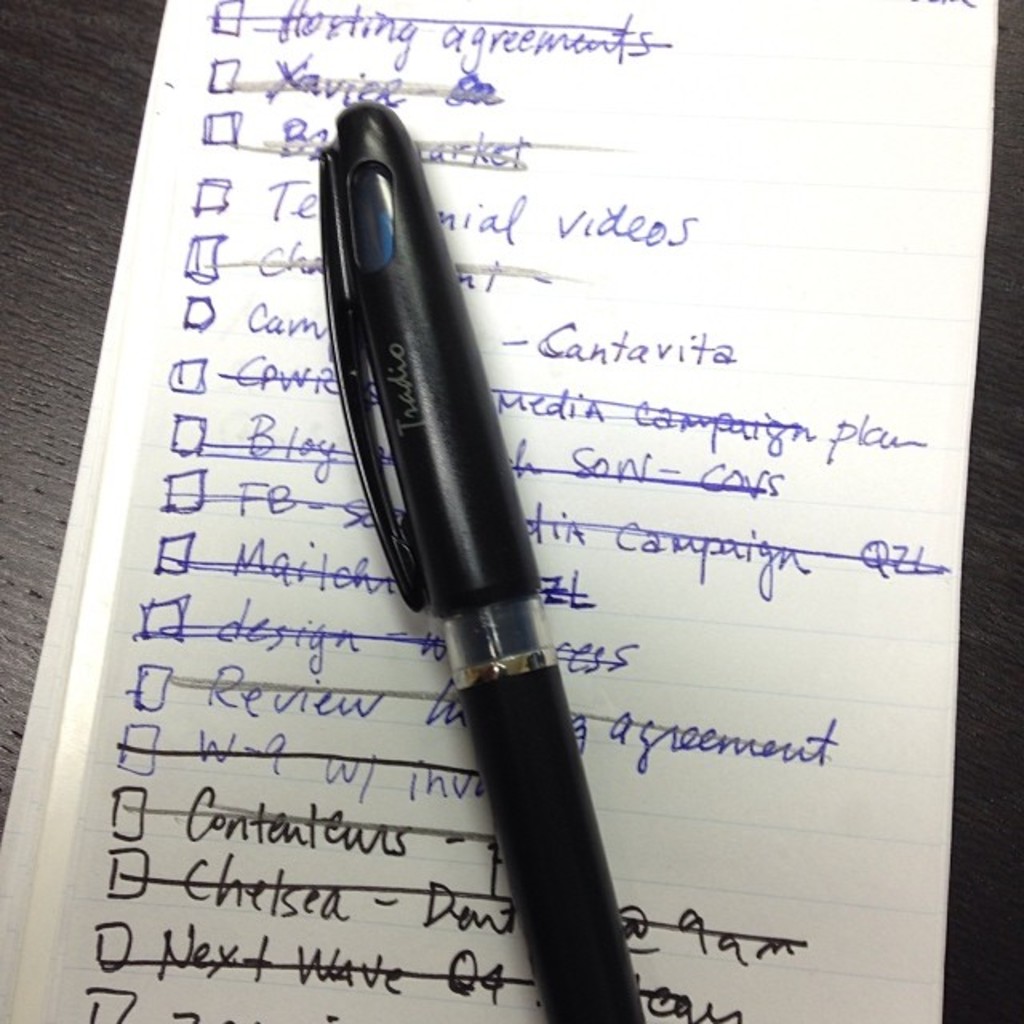 Hosting agreements
Xavier -
arket
Te nial videos
Cha nt -
Cam - Cantavita
media campaign plan
Blog h SON - CONS
FB - So dia campaign QZL
Mailchi ZL
design - w ess
Review h g agreement
W-9 w/ invo
Contenteurs -
Chelsea - Dent @ 9am
Next Wave Q4 tegy
Tradio